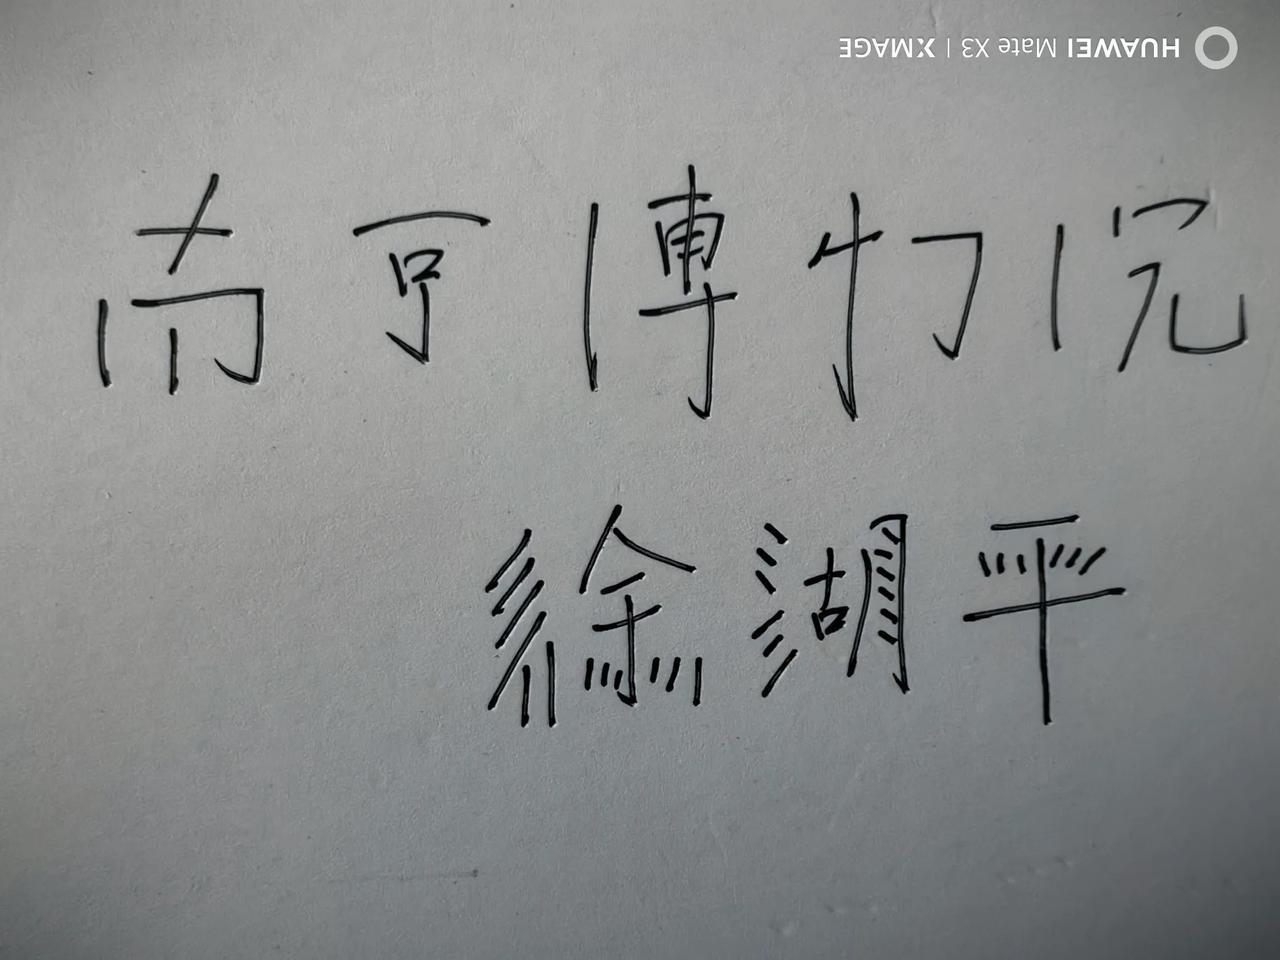 HUAWEI Mate X3 | XMAGE
南京博物院
徐湖平